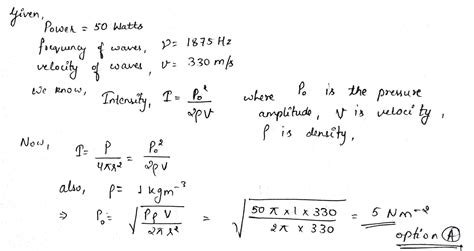 Given,
Power = 50 Watts
frequency of waves, ν = 1875 Hz
velocity of waves, v = 330 m/s
We know, Intensity, I = P₀²/2ρV where P₀ is the pressure
amplitude, V is velocity,
ρ is density,
Now, I = P/4πr² = P₀²/2ρV
also, ρ = 1 kgm⁻³
⇒ P₀ = √(PρV/2πr²) = √(50π × 1 × 330/2π × 330) = 5 Nm⁻²
option Ⓐ